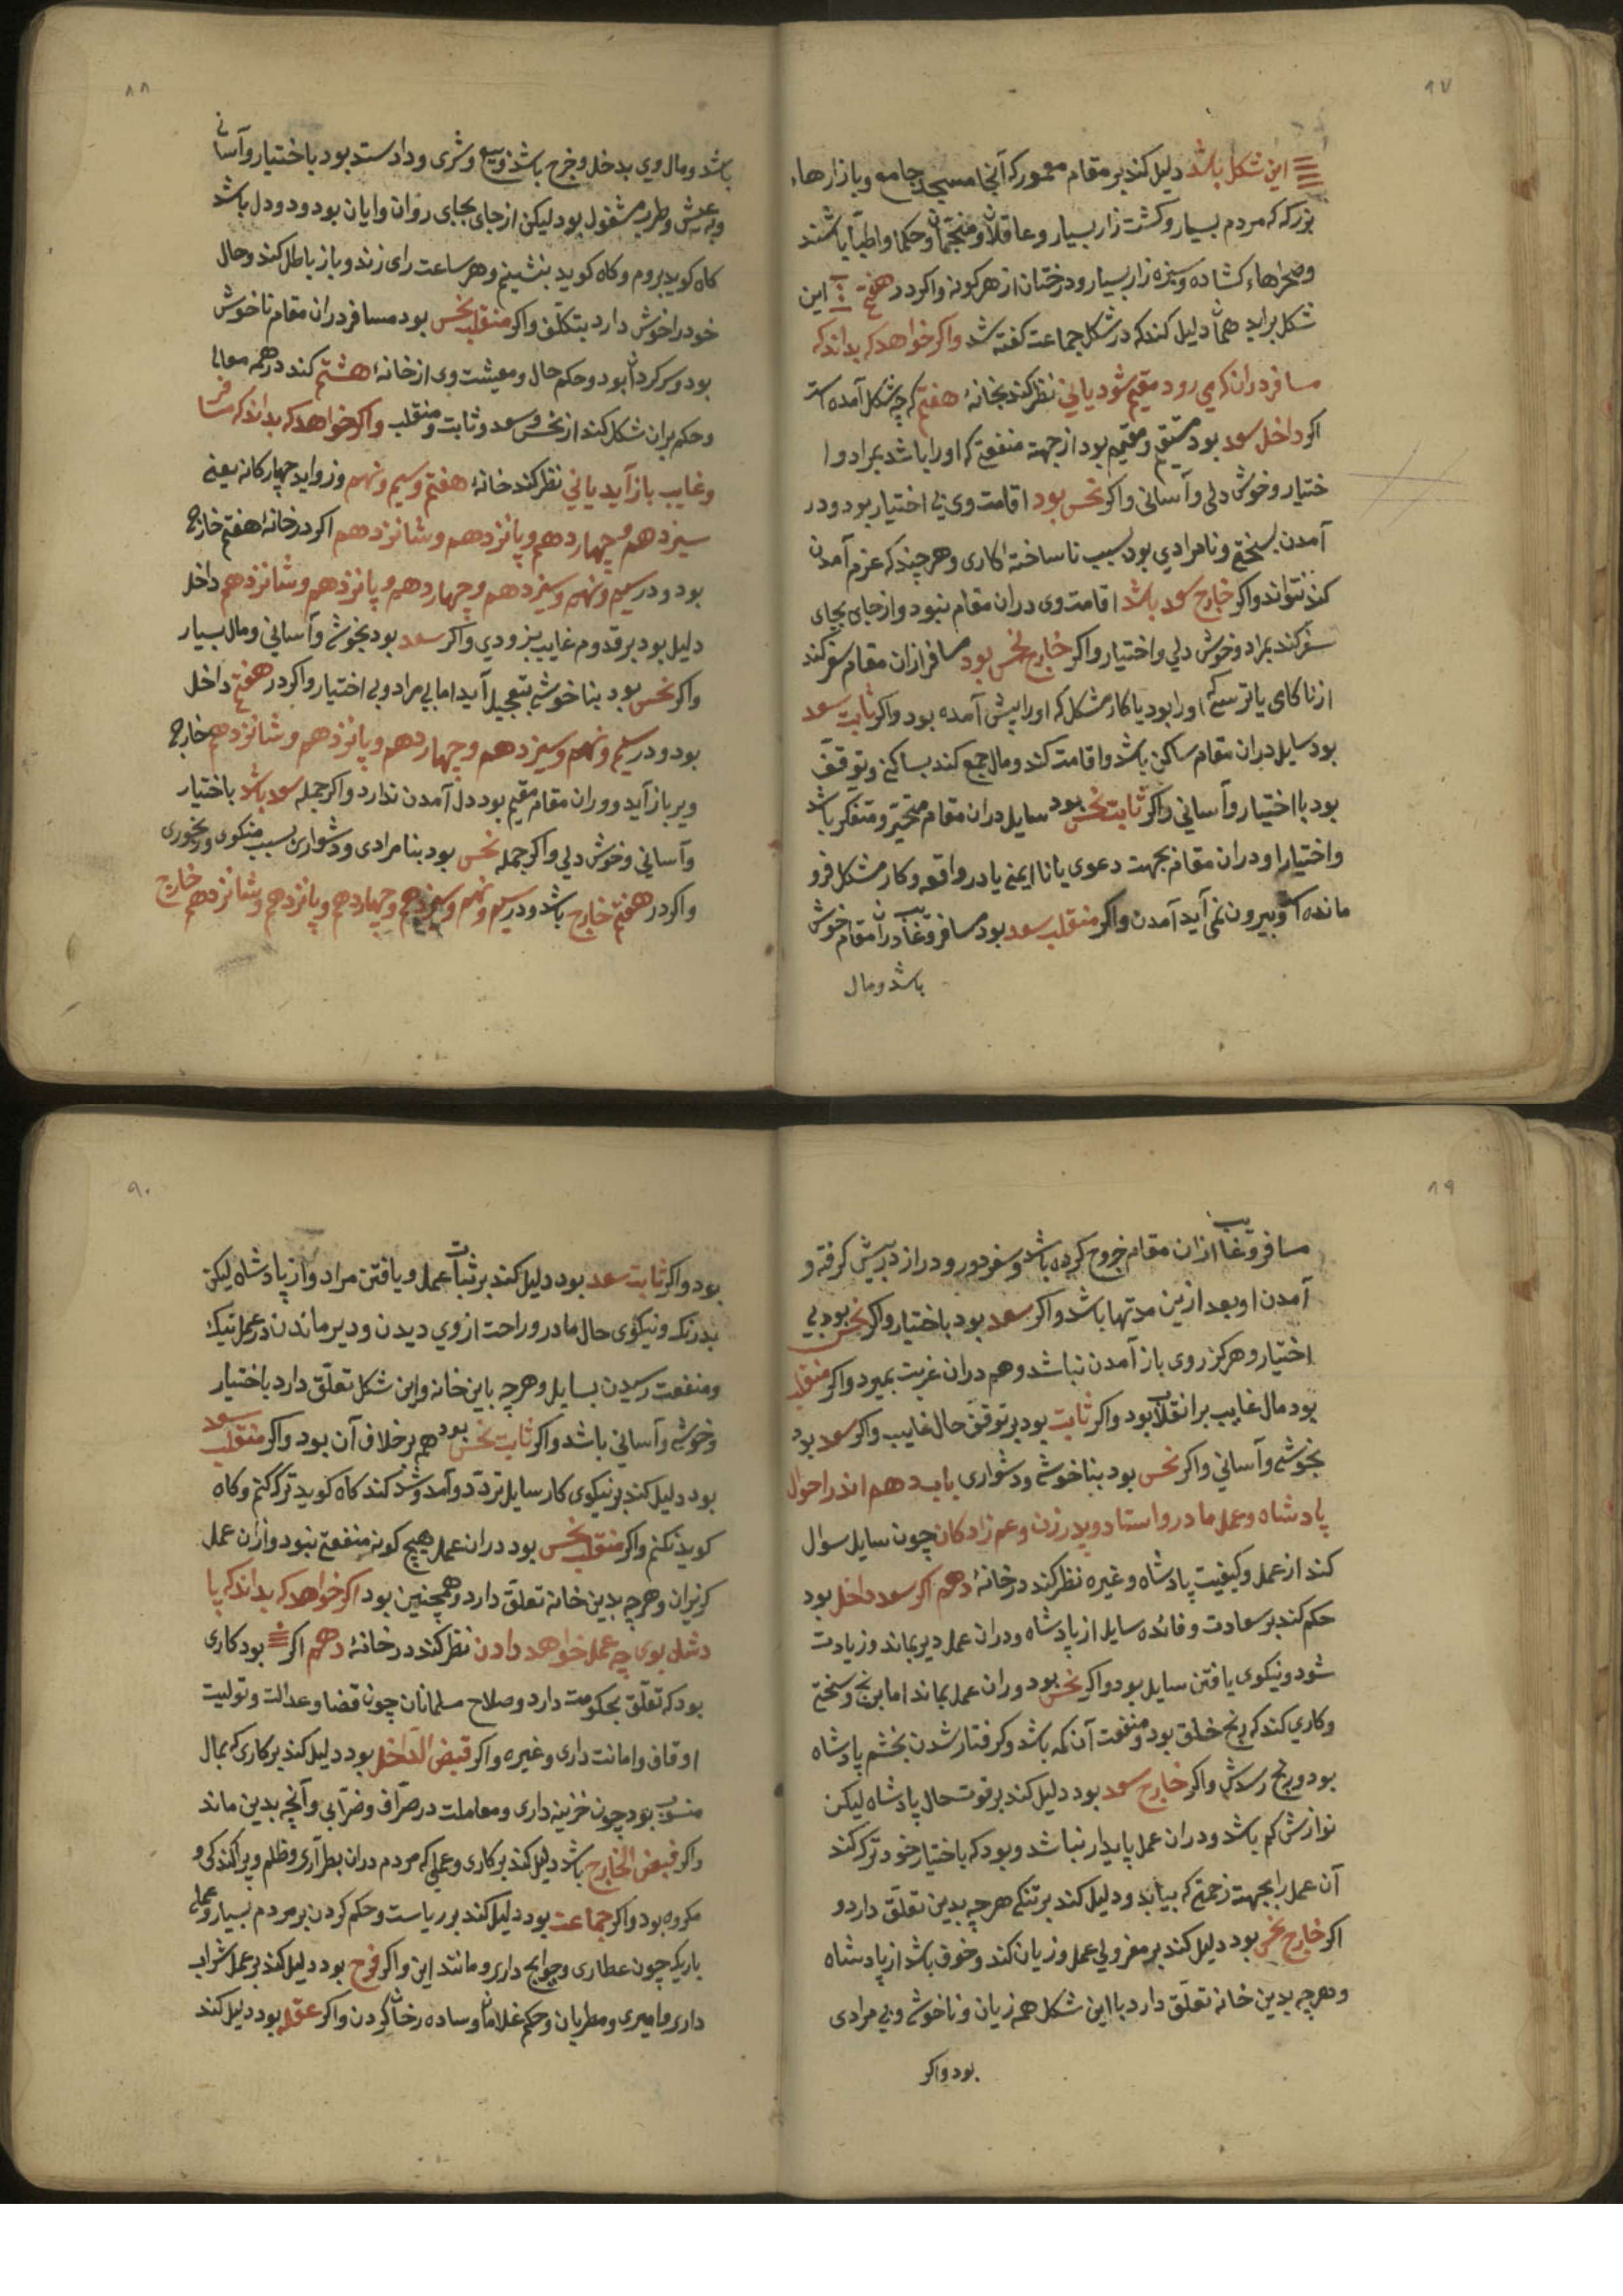 ۸۷
این شکل باشد دلیل کند بر مقام معمور که آنجا مسجد جامع و بازارهاء
بزرک که مردم بسیار و کشت زار بسیار و عاقلان و منجمان و حکما و اطبا باشند
و صحراهاء کشاده و سبزه زار بسیار و درختان از هر کونه و اکر در هفتم این
شکل براید همان دلیل کند که در شکل جماعت کفته شد واکر خواهد که بداند که
مسافر دران که می رود مقیم شود یا نی نظر کند بخانهٔ هفتم که چه شکل آمده است
اکر داخل سعد بود مقیم بود از جهت منفعتی که او را باشد بمراد و ا
ختیار و خوش دلی و آسانی واکر نحس بود اقامت وی بی اختیار بود و در
آمدن بسختی و نامرادی بود بسبب ناساخته کاری و هرچند که عزم آمدن
کند نتواند واکر خارج سعد باشد اقامت وی دران مقام نبود و از جای بجای
سفر کند بمراد و خوش دلی و اختیار واکر خارج نحس بود مسافر ازان مقام سفر کند
از ناکای یا ترسی که او را بود یا کار مشکل که او را پیش آمده بود واکر ثابت سعد
بود سایل دران مقام ساکن باشد و اقامت کند و مال جمع کند بساکنی و توقف
بود با اختیار و آسانی واکر ثابت نحس بود سایل دران مقام متحیر و متفکر باشد
و اختیار او دران مقام بجهت دعوی یا ناایمنی یا در واقعه و کار مشکل فرو
مانده است و بیرون نمی آید آمدن واکر منقلب سعد بود مسافر و غایب دران مقام خوش
باشد و مال
۸۸
باشد و مال وی بدخل و خرج باشد و بیع و شری و داد ستد بود باختیار و آسانی
و به عیش و طرب مشغول بود لیکن از جای بجای روان و ایان بود و دو دل باشد
کاه کوید بروم و کاه کوید بنشینم و هر ساعت رای زند و باز باطل کند و حال
خود را خوش دارد بتکلف واکر منقلب نحس بود مسافر دران مقام ناخوش
بود و سرکردان بود و حکم حال و معیشت وی از خانهٔ هشتم کند در همه معانی
و حکم بران شکل کند از نحس و سعد و ثابت و منقلب واکر خواهد که بداند که مسافر
و غایب باز آید یا نی نظر کند خانهٔ هفتم و سیم و نهم و زواید چهارکانه یعنی
سیزدهم و چهاردهم و پانزدهم و شانزدهم اکر در خانهٔ هفتم خارج
بود و در سیم و نهم و سیزدهم و چهاردهم و پانزدهم و شانزدهم داخل
دلیل بود بر قدوم غایب بزودی واکر سعد بود بخوشی و آسانی و مال بسیار
واکر نحس بود بناخوشی بتعجیل آید اما بی مراد و بی اختیار واکر در هفتم داخل
بود و در سیم و نهم و سیزدهم و چهاردهم و پانزدهم و شانزدهم خارج
دیر باز آید و دران مقام مقیم بود دل آمدن ندارد واکر جمله سعد باشد باختیار
و آسانی و خوش دلی واکر جمله نحس بود بنامرادی و دشواری بسبب منکوی و رنجوری
واکر در هفتم خارج باشد و در سیم و نهم و سیزدهم و چهاردهم و پانزدهم و شانزدهم خارج
۸۹
مسافر و غایب ازان مقام خروج کرده باشد و سفر دور و دراز در پیش کرفته و
آمدن او بعد ازین مدتها باشد واکر سعد بود باختیار واکر نحس بود بی
اختیار و هرکز روی باز آمدن نباشد و هم دران غربت بمیرد واکر منقلب
بود مال غایب بر انقلاب بود واکر ثابت بود بر توقف حال غایب واکر سعد بود
بخوشی و آسانی واکر نحس بود بناخوشی و دشواری باب دهم اندر احوال
پادشاه و عمل مادر و استاد و پدر زن و عم زادکان چون سایل سوال
کند از عمل و کیفیت پادشاه و غیره نظر کند در خانهٔ دهم اکر سعد داخل بود
حکم کند بر سعادت و فائده سایل از پادشاه و دران عمل دیر بماند و زیادت
شود و نیکوی یافتن سایل بود واکر نحس بود دران عمل بماند اما برنج و سختی
و کاری کند که رنج خلق بود و منفعت آن کمه باشد و کرفتار شدن بخشم پادشاه
بود و رنج رسدش واکر خارج سعد بود دلیل کند بر قوت حال پادشاه لیکن
نوازش کم باشد و دران عمل پایدار نباشد و بود که باختیار خود ترک کند
آن عمل را بجهت زحمتی که بیابد و دلیل کند بر تنکی هر چه بدین تعلق دارد و
اکر خارج نحس بود دلیل کند بر معزولی عمل و زیان کند و خوف باشد از پادشاه
و هر چه بدین خانه تعلق دارد با این شکل همه زیان و ناخوشی و بی مرادی
بود واکر
۹۰
بود واکر ثابت سعد بود دلیل کند بر ثبات عمل و یافتن مراد و از پادشاه لیکن
بدرنک و نیکوی حال مادر و راحت از وی دیدن و دیر ماندن در عمل نیک
و منفعت رسیدن بسایل و هر چه باین خانه و این شکل تعلق دارد باختیار
و خوشی و آسانی باشد واکر ثابت نحس بود هم بر خلاف آن بود واکر منقلب سعد
بود دلیل کند بر نیکوی کار سایل تردد و آمد و شد کند کاه کوید ترک کنم و کاه
کوید نکنم واکر منقلب نحس بود دران عمل هیچ کونه منفعتی نبود و ازان عمل
کریزان و هر چه بدین خانه تعلق دارد و همچنین بود اکر خواهد که بداند که پا
دشاه بوی چه عمل خواهد دادن نظر کند در خانهٔ دهم اکر بود کاری
بود که تعلق بحکومت دارد و صلاح مسلمانان چون قضا و عدالت و تولیت
اوقاف و امانت داری و غیره واکر قبض الداخل بود دلیل کند بر کاری که بمال
منسوب بود چون خزینه داری و معاملات در صرافی و ضرابی و آنچه بدین ماند
واکر قبض الخارج باشد دلیل کند بر کاری و عملی که مردم دران و ظلم و پراکندکی و
مکروه بود واکر جماعت بود دلیل کند بر ریاست و حکم کردن بر مردم بسیار و عملی
باریک چون عطاری و حوایج داری و مانند این واکر فرح بود دلیل کند بر عمل شراب
داری و امیری و مطربان و حکم غلامان و ساده رخان کردن واکر عقله بود دلیل کند